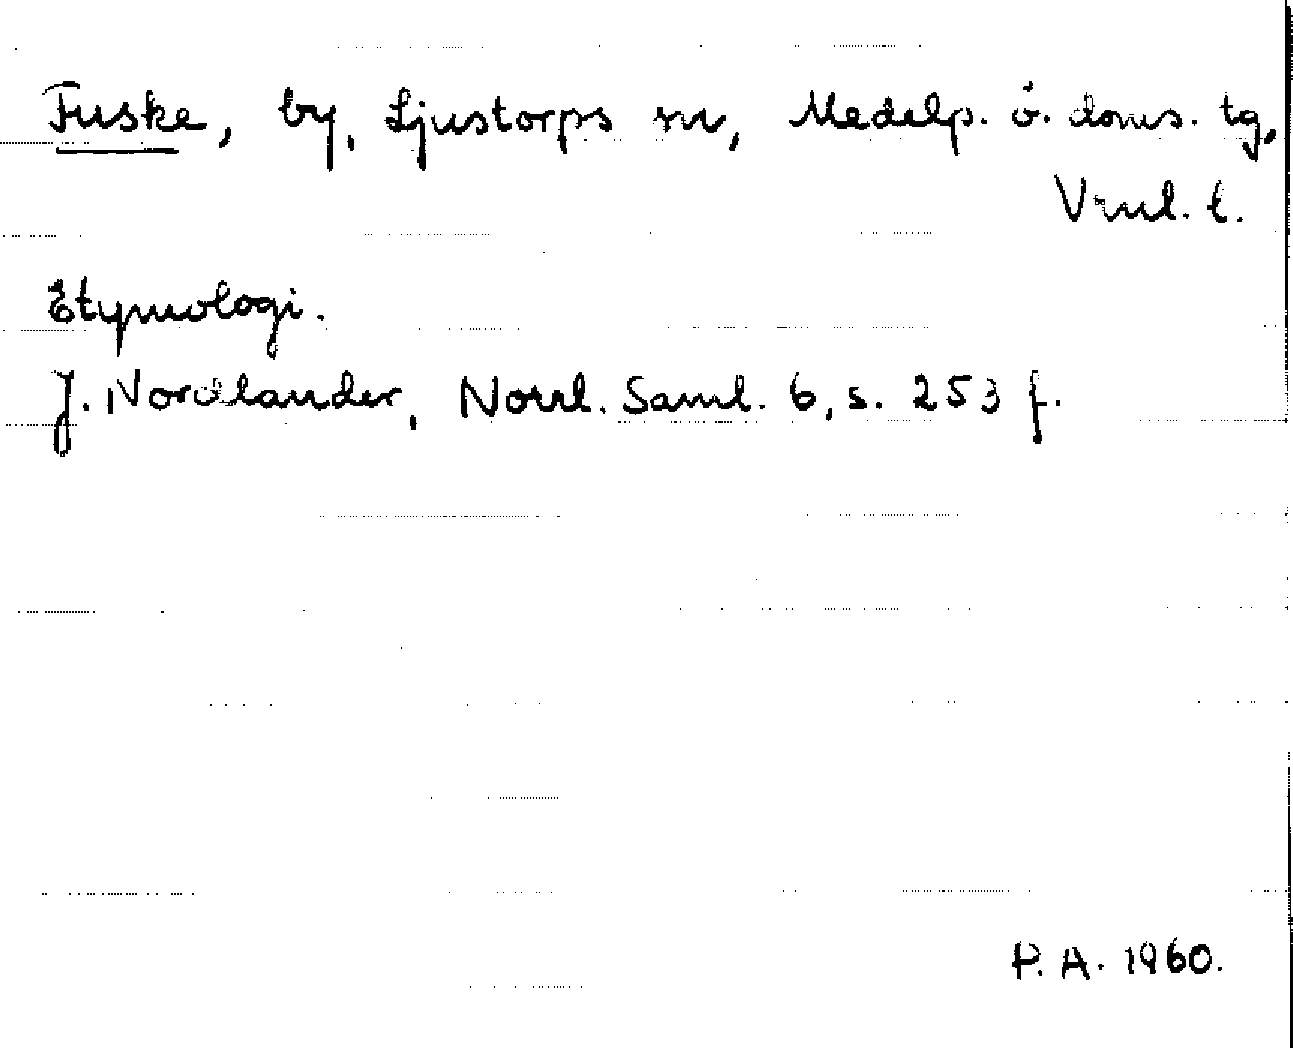 Fuske, by, Ljustorps sn, Medelp. ö. doms. tg,
Vnl. l.
Etymologi.
J. Nordlander, Norrl. Saml. 6, s. 253 f.
P. A. 1960.